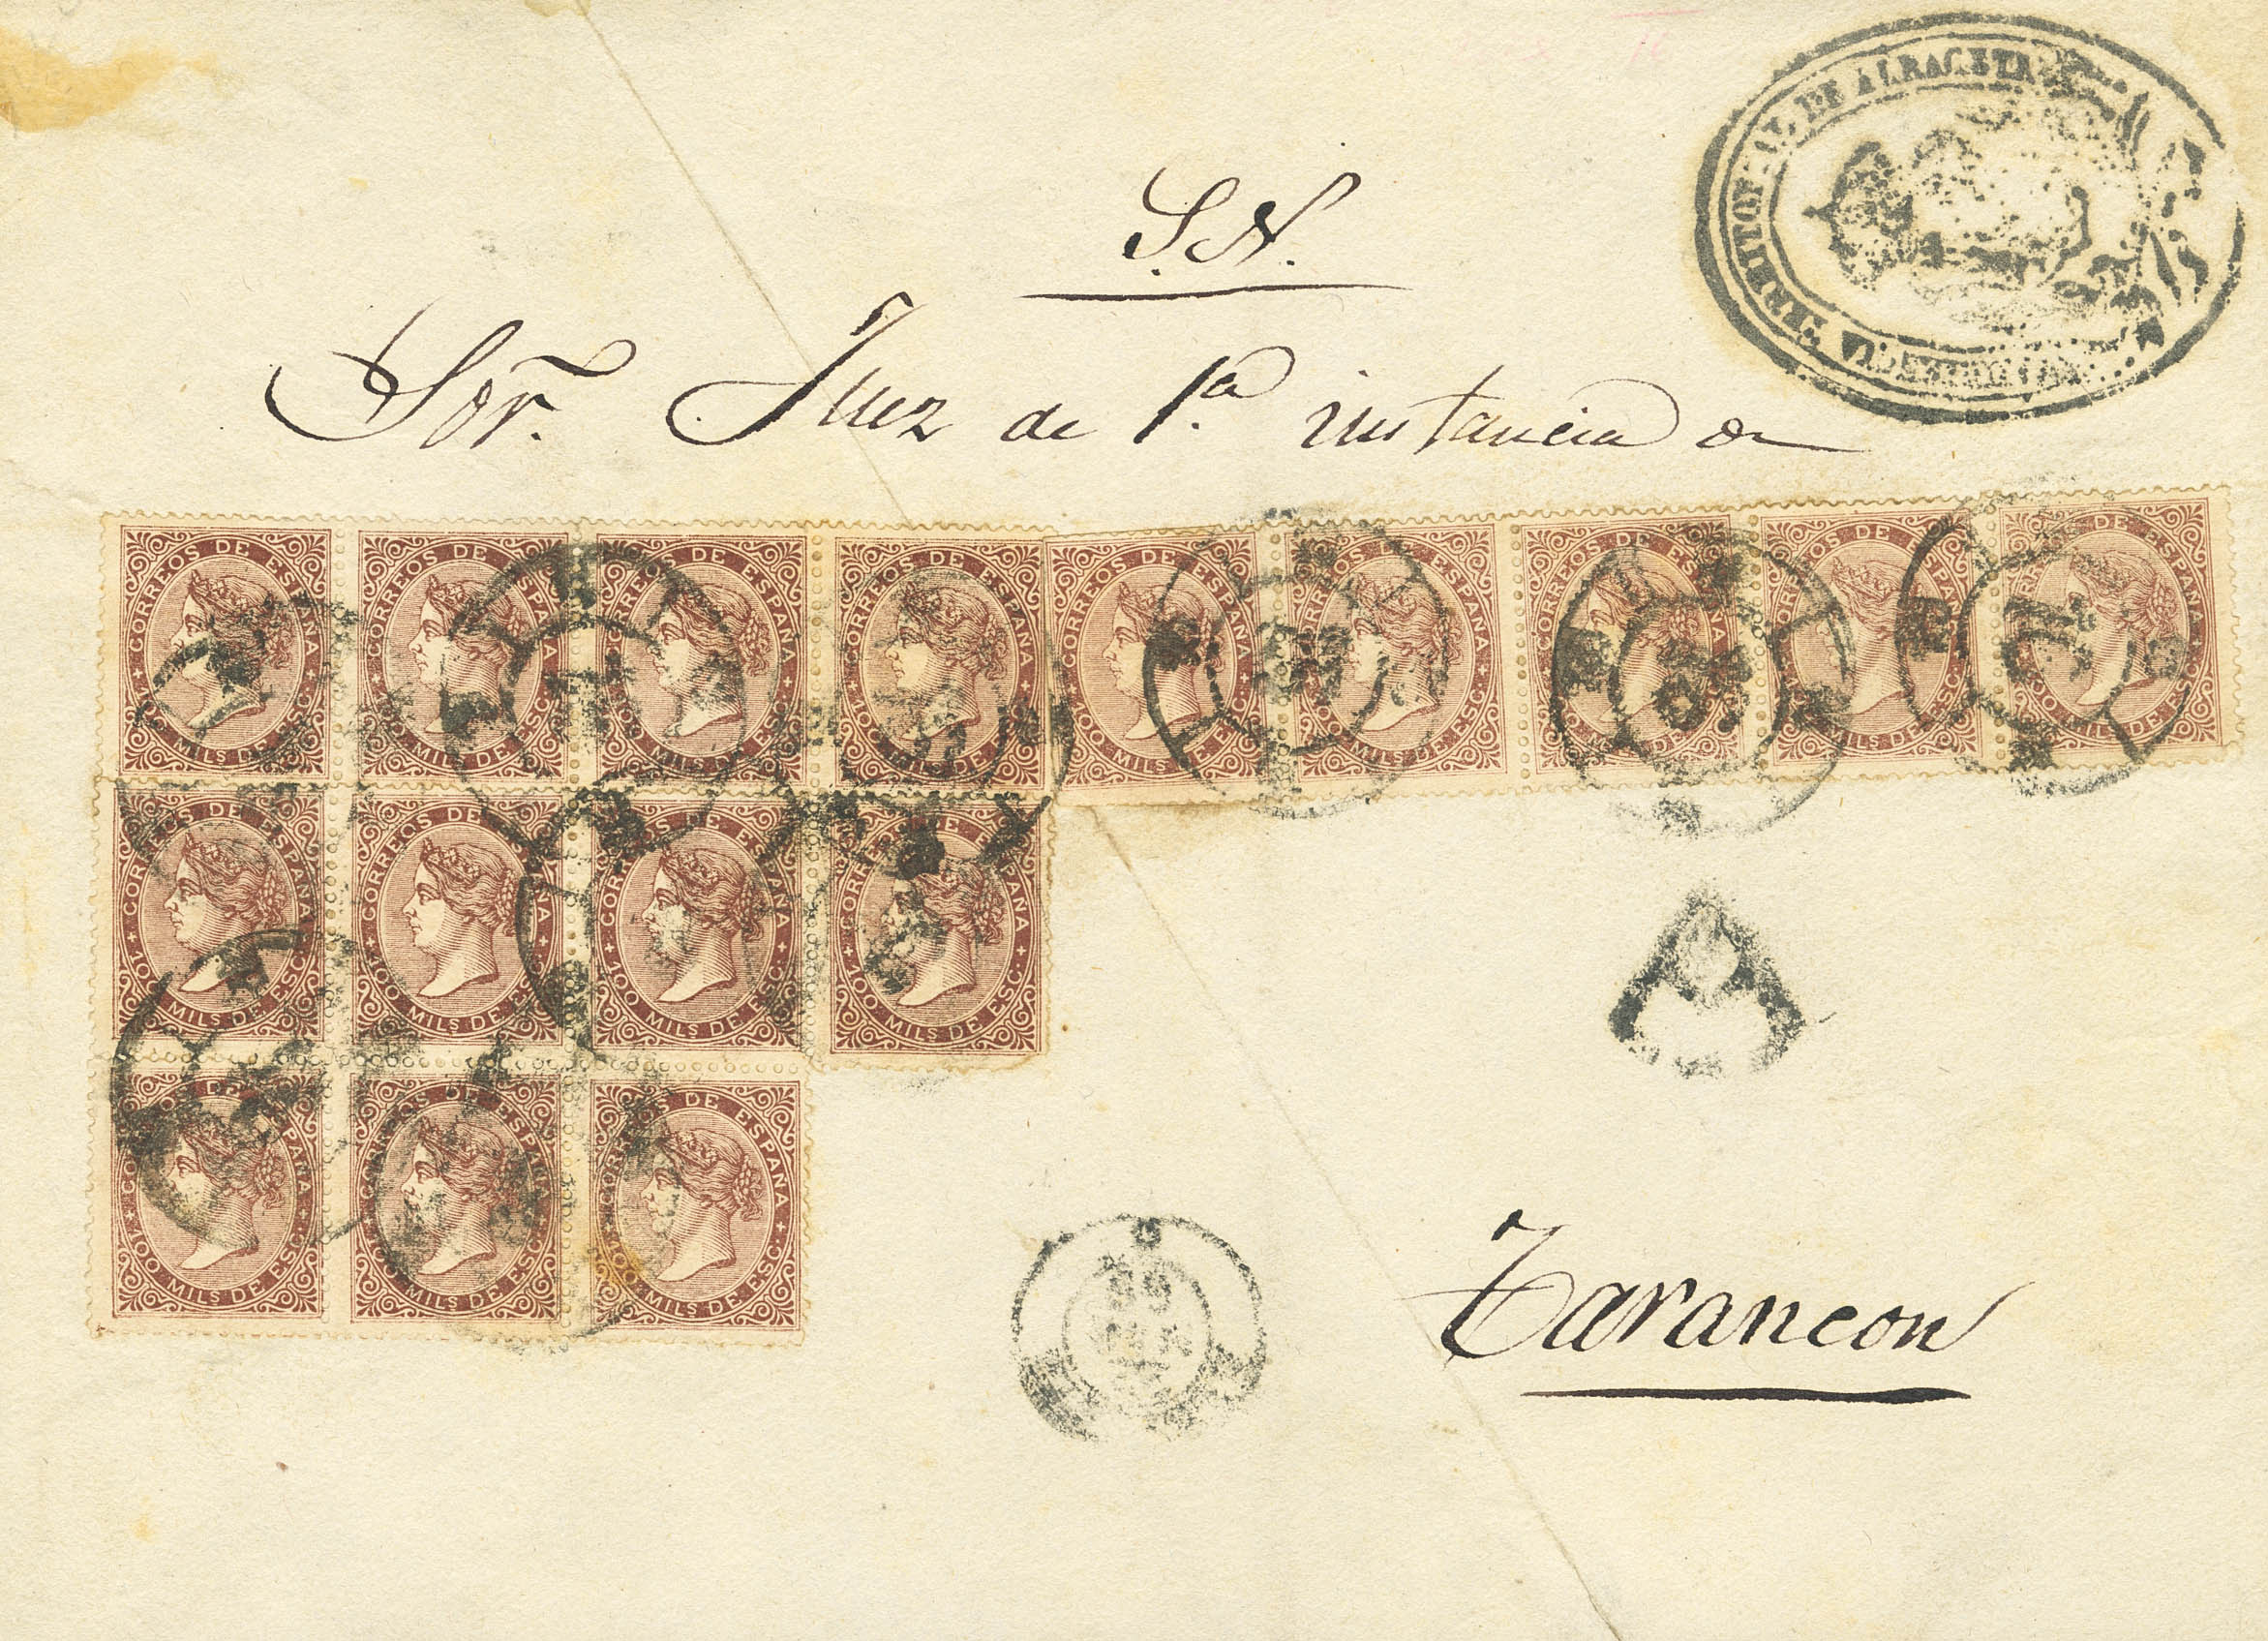 S.N.
TERRITORIAL DE ALBACETE
Sor. Juez de 1.ª instancia en
CORREOS DE ESPAÑA
100 MILS DE ESC.
CORREOS DE ESPAÑA
100 MILS DE ESC.
CORREOS DE ESPAÑA
100 MILS DE ESC.
CORREOS DE ESPAÑA
100 MILS DE ESC.
CORREOS DE ESPAÑA
100 MILS DE ESC.
CORREOS DE ESPAÑA
100 MILS DE ESC.
CORREOS DE ESPAÑA
100 MILS DE ESC.
CORREOS DE ESPAÑA
100 MILS DE ESC.
CORREOS DE ESPAÑA
100 MILS DE ESC.
CORREOS DE ESPAÑA
100 MILS DE ESC.
CORREOS DE ESPAÑA
100 MILS DE ESC.
CORREOS DE ESPAÑA
100 MILS DE ESC.
CORREOS DE ESPAÑA
100 MILS DE ESC.
CORREOS DE ESPAÑA
100 MILS DE ESC.
CORREOS DE ESPAÑA
100 MILS DE ESC.
CORREOS DE ESPAÑA
100 MILS DE ESC.
Tarancon